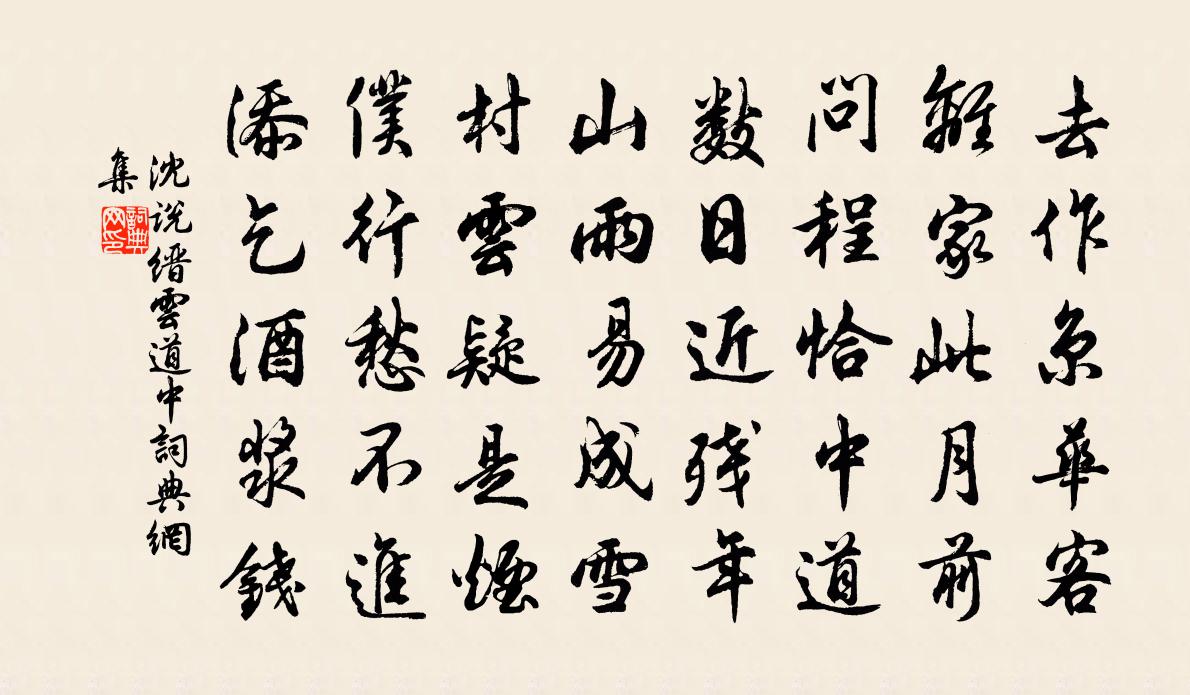 去作京華客
離家此月前
問程恰中道
數日近殘年
山雨易成雪
村雲疑是煙
僕行愁不進
添乞酒漿錢
沈說縉雲道中詞典網
集
詞典
网印